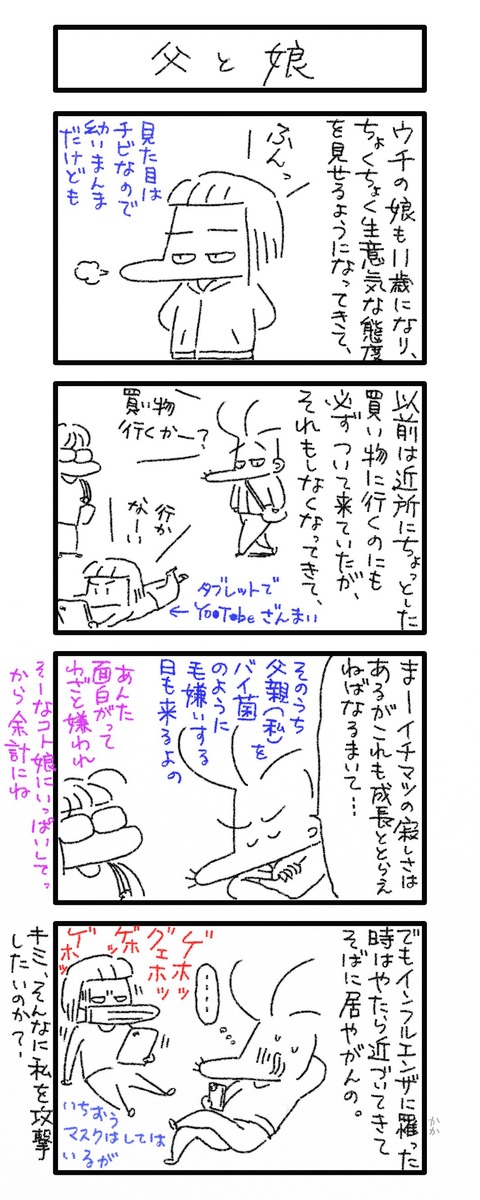 父と娘
ウチの娘も11歳になり、
ちょくちょく生意気な態度
を見せるようになってきて、
ふんっ
見た目は
チビなので
幼いまんま
だけども
以前は近所にちょっとした
買い物に行くのにも
必ずついて来ていたが、
それもしなくなってきて、
買い物
行くかー?
行か
なーい
タブレットで
←YooTobeざんまい
まーイチマツの寂しさは
あるがこれも成長ととらえ
ねばなるまいて…
そのうち
父親(私)を
バイ菌
のように
毛嫌いする
日も来るよの
あんた
面白がって
わざと嫌われ
そーなコト娘にいっぱいしてっ
から余計にね
でもインフルエンザに罹った
かか
時はやたら近づいてきて
そばに居やがんの。
……
ゲホッ
グェホッ
ゲホッ
ゲホッ
いちおう
マスクはしては
いるが
キミ、そんなに私を攻撃
したいのか?